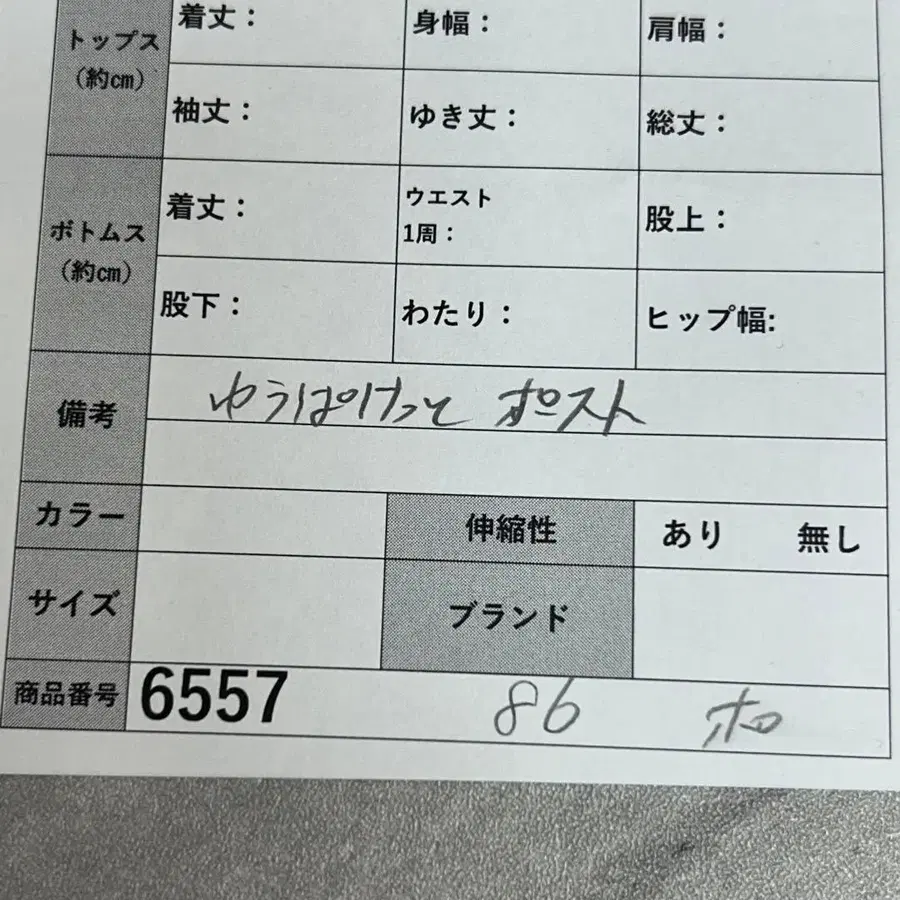 トップス
(約㎝)
着丈： 身幅： 肩幅：
袖丈： ゆき丈： 総丈：
ボトムス
(約㎝)
着丈： ウエスト
1周： 股上：
股下： わたり： ヒップ幅:
備考 ゆうぱけっと ポスト
カラー 伸縮性 あり 無し
サイズ ブランド
商品番号 6557 86